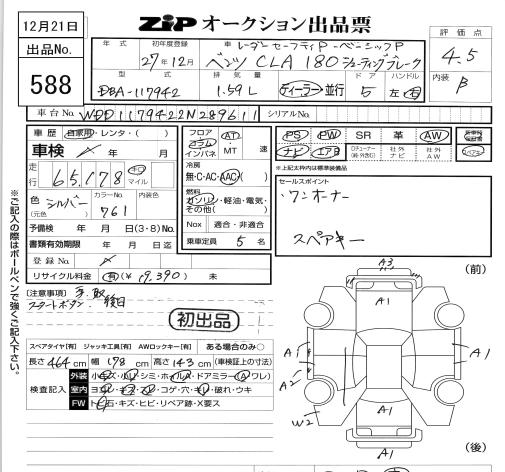 12月21日
ZiP オークション出品票
出品No.
588
年式 初年度登録 車 レーダーセーフティP・ベーシックP 評価点
27年12月 ベンツ CLA 180 シューティングブレーク 4.5
型式 排気量 ドア ハンドル 内装
DBA-117942 1.59L ディーラー・並行 5 左・右 B
車台No. WDD1179422N289611 シリアルNo.
車歴 自家用・レンタ・( )
車検 年 月
走行 65,178 キロ マイル
色 シルバー カラーNo. 761 内装色
(元色)
予備検 年 月 日(3・8)No.
書類有効期限 年 月 日迄
登録No.
リサイクル料金 有(¥ 19,390) 未
フロア コラム インパネ AT・MT 速
冷房
無・C・AC・AAC( )
燃料
ガソリン・軽油・電気・その他( )
Nox 適合・非適合
乗車定員 5 名
PS PW SR 革 AW
ナビ エアB 社外ナビ 社外AW
※上記太枠内は標準装備
セールスポイント
・ワンオーナー
スペアキー
[注意事項]
スタートボタン 後日
初出品
スペアタイヤ[有] ジャッキ工具[有] AWロックキー[有] ある場合のみ○
長さ 464 cm 幅 178 cm 高さ 143 cm (車検証上の寸法)
検査記入
外装 小キズ・凹・シミ・ホイール・ドアミラー(A ワレ)
室内 ヨゴレ・キズ・スレ・コゲ・穴・キレ・破れ・ウキ
FW トビ石・キズ・ヒビ・リペア跡・X要ス
(前)
A3
A1
A1
A2
A1
W2
A1
(後)
※ご記入の際はボールペンで強くご記入下さい。